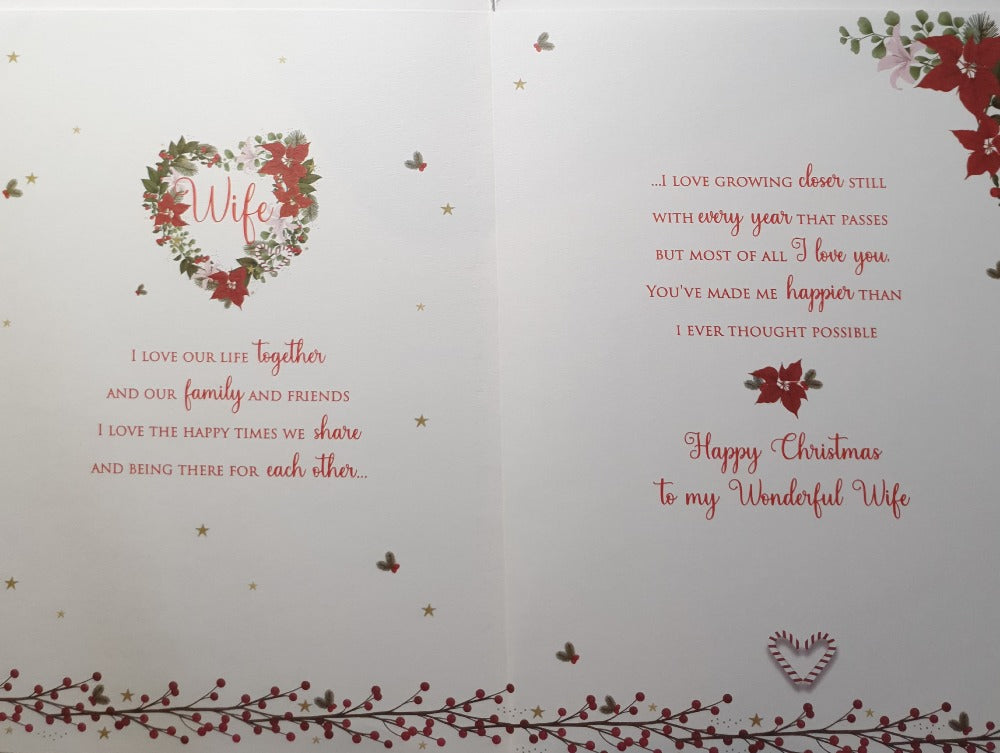 Wife
I LOVE OUR LIFE together
AND OUR family AND FRIENDS
I LOVE THE HAPPY TIMES WE share
AND BEING THERE FOR each other...
...I LOVE GROWING closer STILL
WITH every year THAT PASSES
BUT MOST OF ALL I love you.
YOU'VE MADE ME happier THAN
I EVER THOUGHT POSSIBLE
Happy Christmas
to my Wonderful Wife